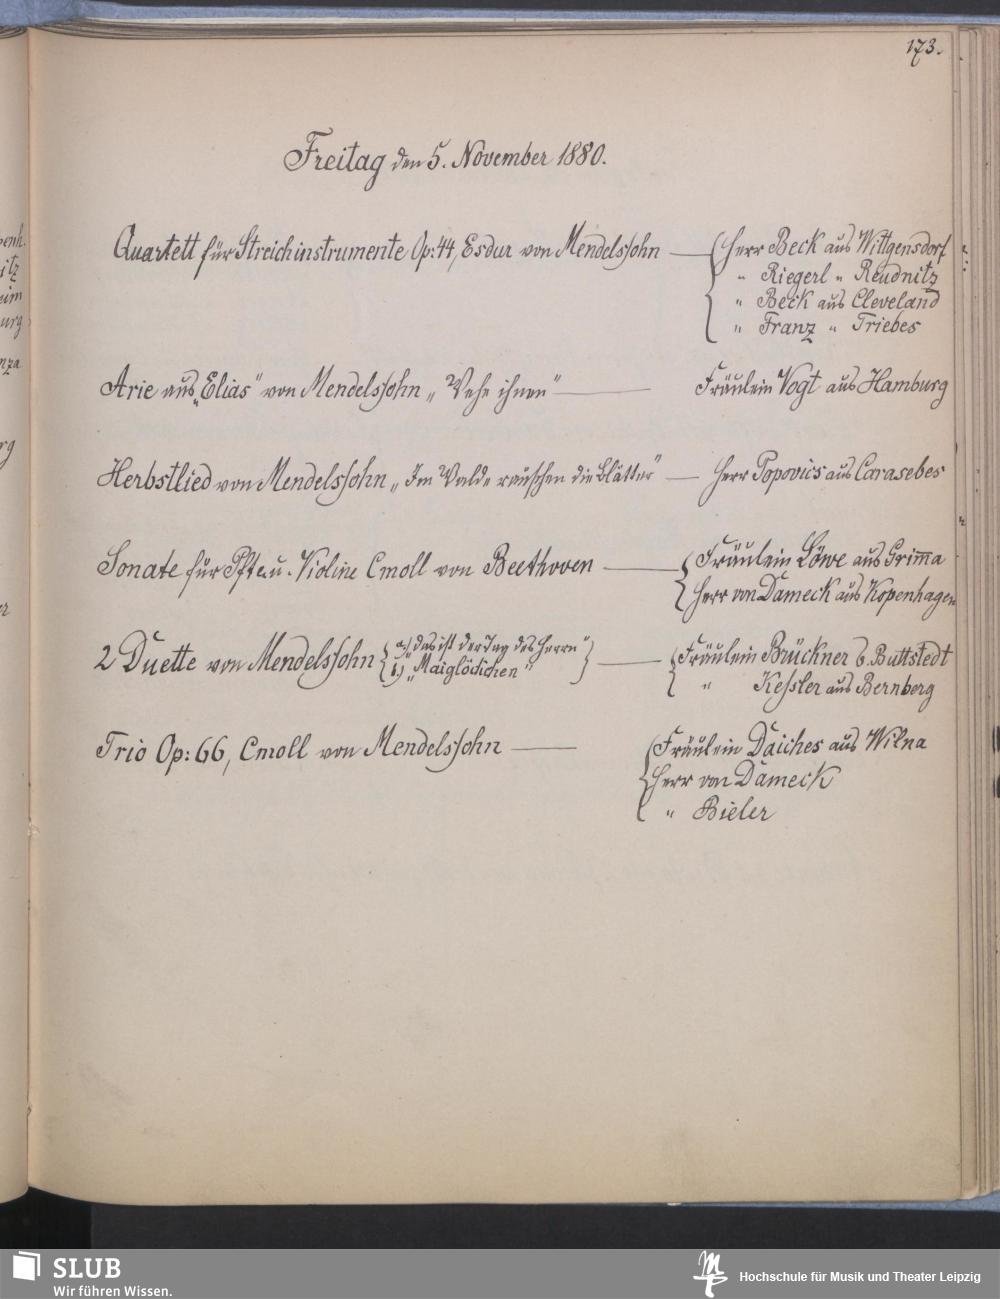 173.
Freitag den 5. November 1880.
Quartett für Streichinstrumente Op: 44, Esdur von Mendelssohn — Herr Beck aus Wittgensdorf
" Riegerl " Reudnitz
" Beck aus Cleveland
" Franz " Triebes
Arie aus „Elias" von Mendelssohn „Wehe ihnen" — Fräulein Vogt aus Hamburg
Herbstlied von Mendelssohn „Im Walde rauschen die Blätter" — Herr Popovics aus Carasebes
Sonate für Pfte u. Violine Cmoll von Beethoven — Fräulein Löwe aus Grimma
Herr von Dameck aus Kopenhagen
2 Duette von Mendelssohn a.) „das ist der Tag des Herrn" — Fräulein Brückner b. Buttstedt
b.) „Maiglöckchen" " Kessler aus Bernberg
Trio Op: 66, Cmoll von Mendelssohn — Fräulein Daiches aus Wilna
Herr von Dameck
" Bieler
SLUB
Wir führen Wissen.
Hochschule für Musik und Theater Leipzig